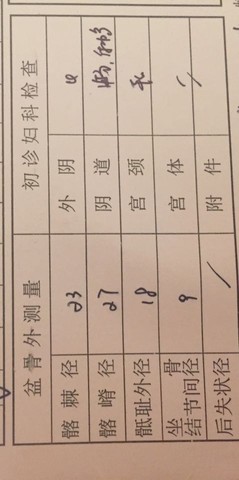 盆骨外测量 初诊妇科检查
髂棘径 23 外阴
髂嵴径 27 阴道
骶耻外径 18 宫颈
坐骨 9 宫体 /
结节间径
后失状径 / 附件